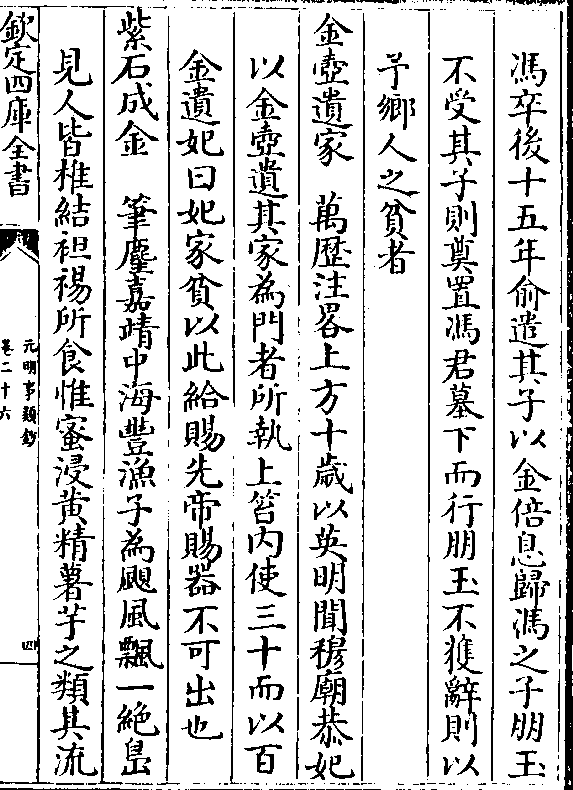 馮卒後十五年俞遣其子以金倍息歸馮之子朋玉
不受其子則奠置馮君墓下而行朋玉不獲辭則以
予鄉人之貧者
金壺遺家　萬歴注畧上方十歳以英明聞穆廟恭妃
以金壺遺其家為門者所執上笞内使三十而以百
金遺妃曰妃家貧以此給賜先帝賜器不可出也
紫石成金　筆麈嘉靖中海豐漁子為颶風飄一絶島
見人皆椎結袒裼所食惟蜜浸黄精薯芋之類其流
欽定四庫全書
元明事類鈔
卷二十六
四